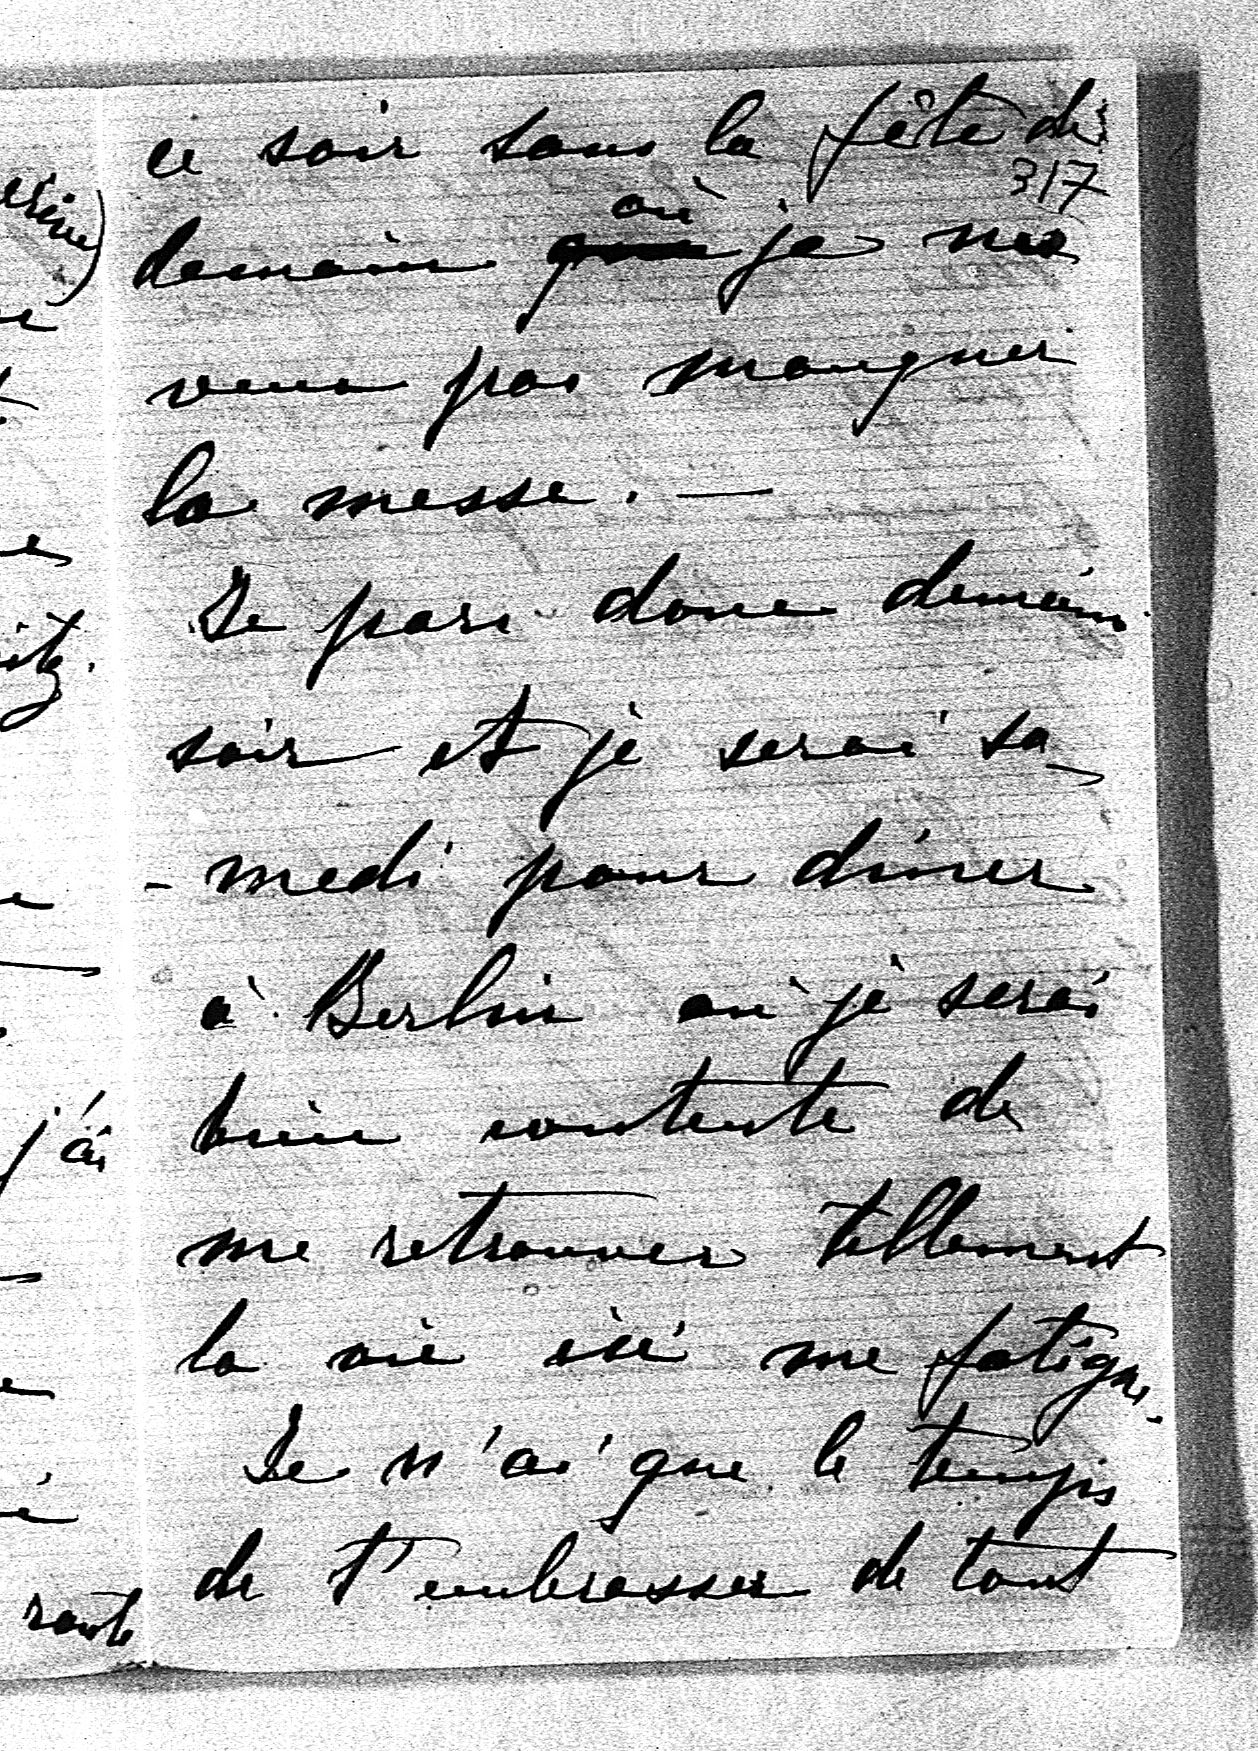 ce soir sans la fête de
317
où
demain que je ne
veux pas manquer
la messe. —
Je pars donc demain
soir et je serai sa
- medi pour dîner
à Berlin où je serai
bien contente de
me retrouver tellement
la vie ici me fatigue.
Je n'ai que le temps
de t'embrasser de tout
j'ai
route